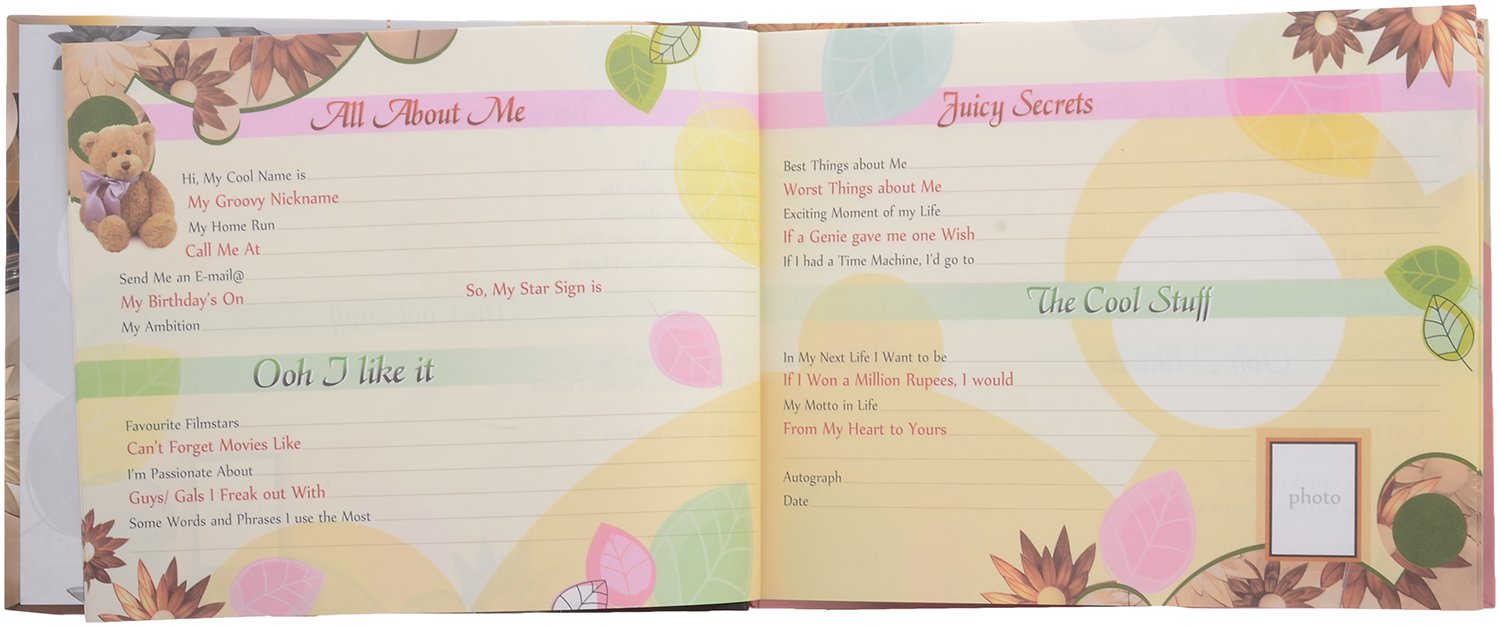 All About Me
Hi, My Cool Name is
My Groovy Nickname
My Home Run
Call Me At
Send Me an E-mail@
My Birthday's On So, My Star Sign is
My Ambition
Ooh I like it
Favourite Filmstars
Can't Forget Movies Like
I'm Passionate About
Guys/ Gals I Freak out With
Some Words and Phrases I use the Most
Juicy Secrets
Best Things about Me
Worst Things about Me
Exciting Moment of my Life
If a Genie gave me one Wish
If I had a Time Machine, I'd go to
The Cool Stuff
In My Next Life I Want to be
If I Won a Million Rupees, I would
My Motto in Life
From My Heart to Yours
Autograph
Date
photo